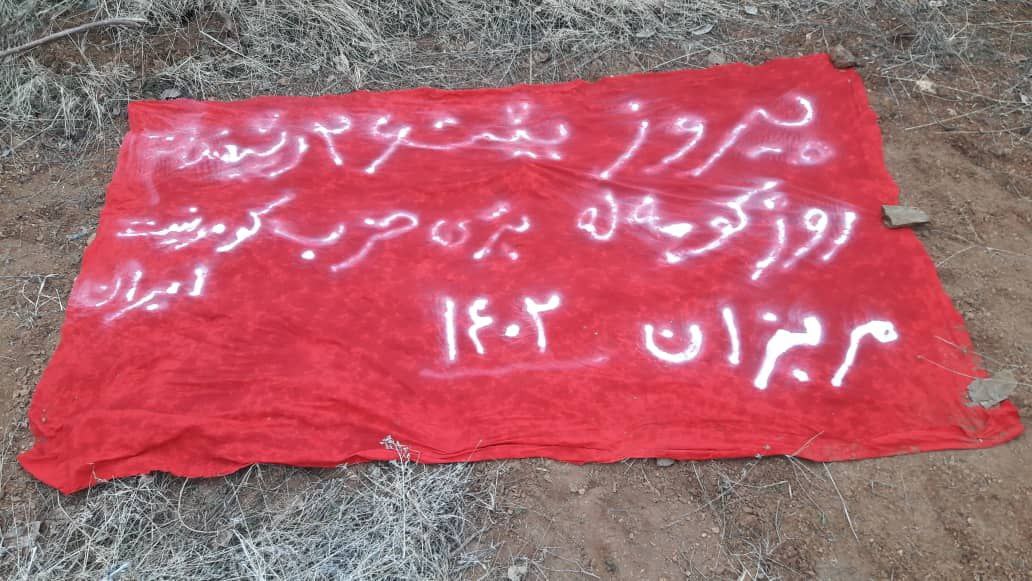 پیروز بیت ۲۶
روژ کومه له بژی حزب کومونیست
ایران
مریوان ۱۴۰۲